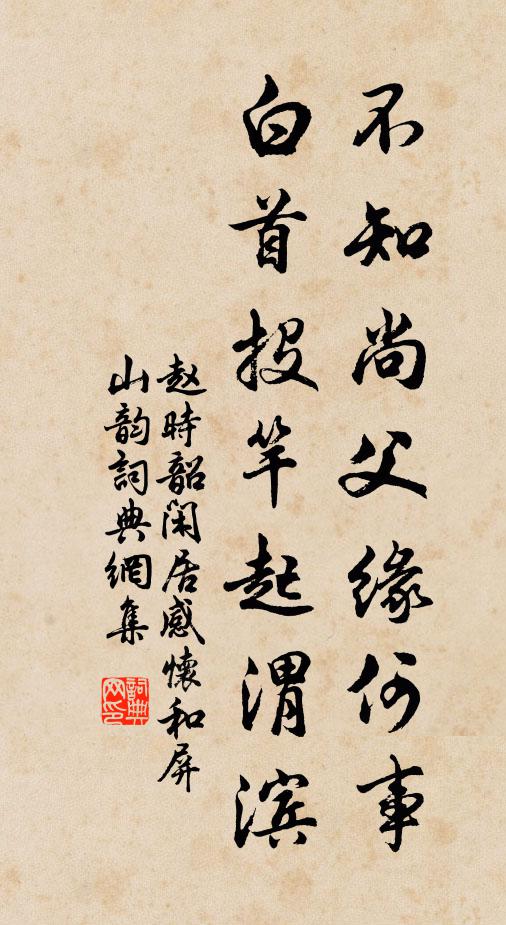 不知尚父缘何事
白首投竿起渭滨
赵时韶闲居感怀和屏
山韵詞典網集
詞典
网印